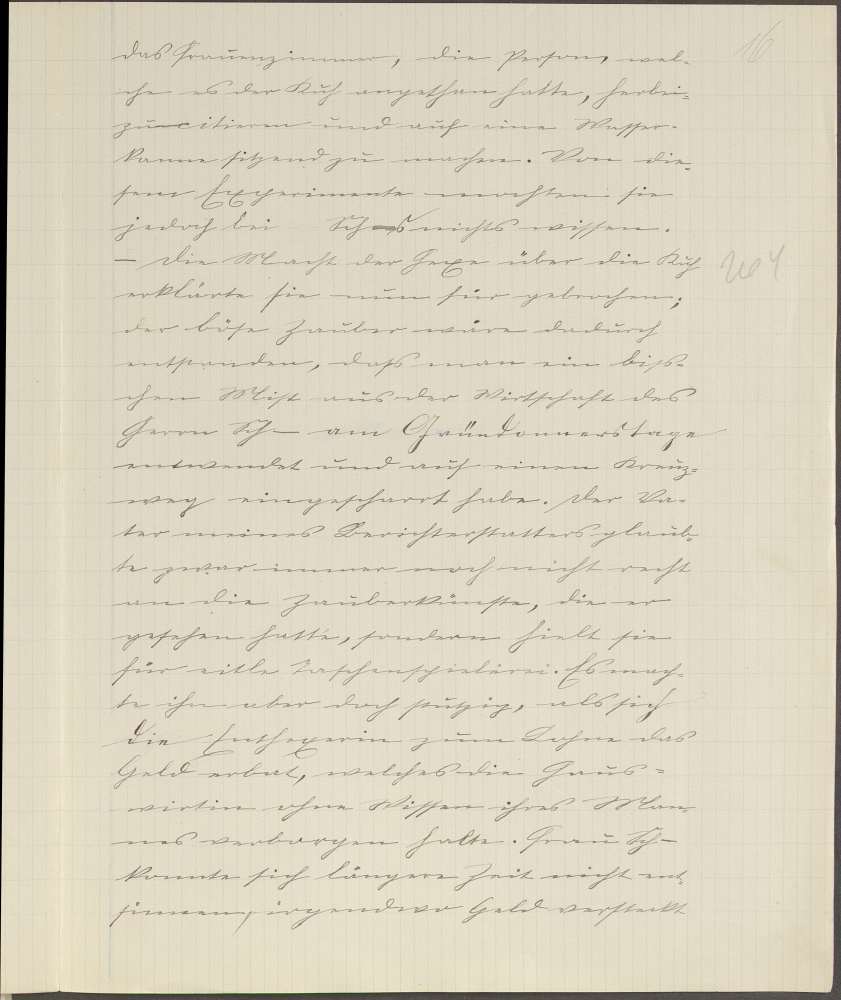 16
das Frauenzimmer, die Person, wel-
che es der Kuh angethan hatte, herbei-
zucitieren und auf eine Wasser-
kanne sitzend zu machen. Von die-
sem Experimente mochten sie
jedoch bei Sch-s nichts wissen.
— Die Macht der Hexe über die Kuh
erklärte sie nun für gebrochen;
der böse Zauber wäre dadurch
entstanden, dass man ein biss-
chen Mist aus der Wirtschaft des
Herrn Sch— am Gründonnerstage
entwendet und auf einen Kreuz-
weg eingescharrt habe. Der Va-
ter meines Berichterstatters glaub-
te zwar immer noch nicht recht
an die Zauberkünste, die er
gesehen hatte, sondern hielt sie
für eitle Taschenspielerei. Es mach-
te ihn aber doch stutzig, als sich
die Enthexerin zum Lohne das
Geld erbat, welches die Haus-
wirtin ohne Wissen ihres Man-
nes verborgen halte. Frau Sch—
konnte sich längere Zeit nicht ent-
sinnen, irgendwo Geld versteckt